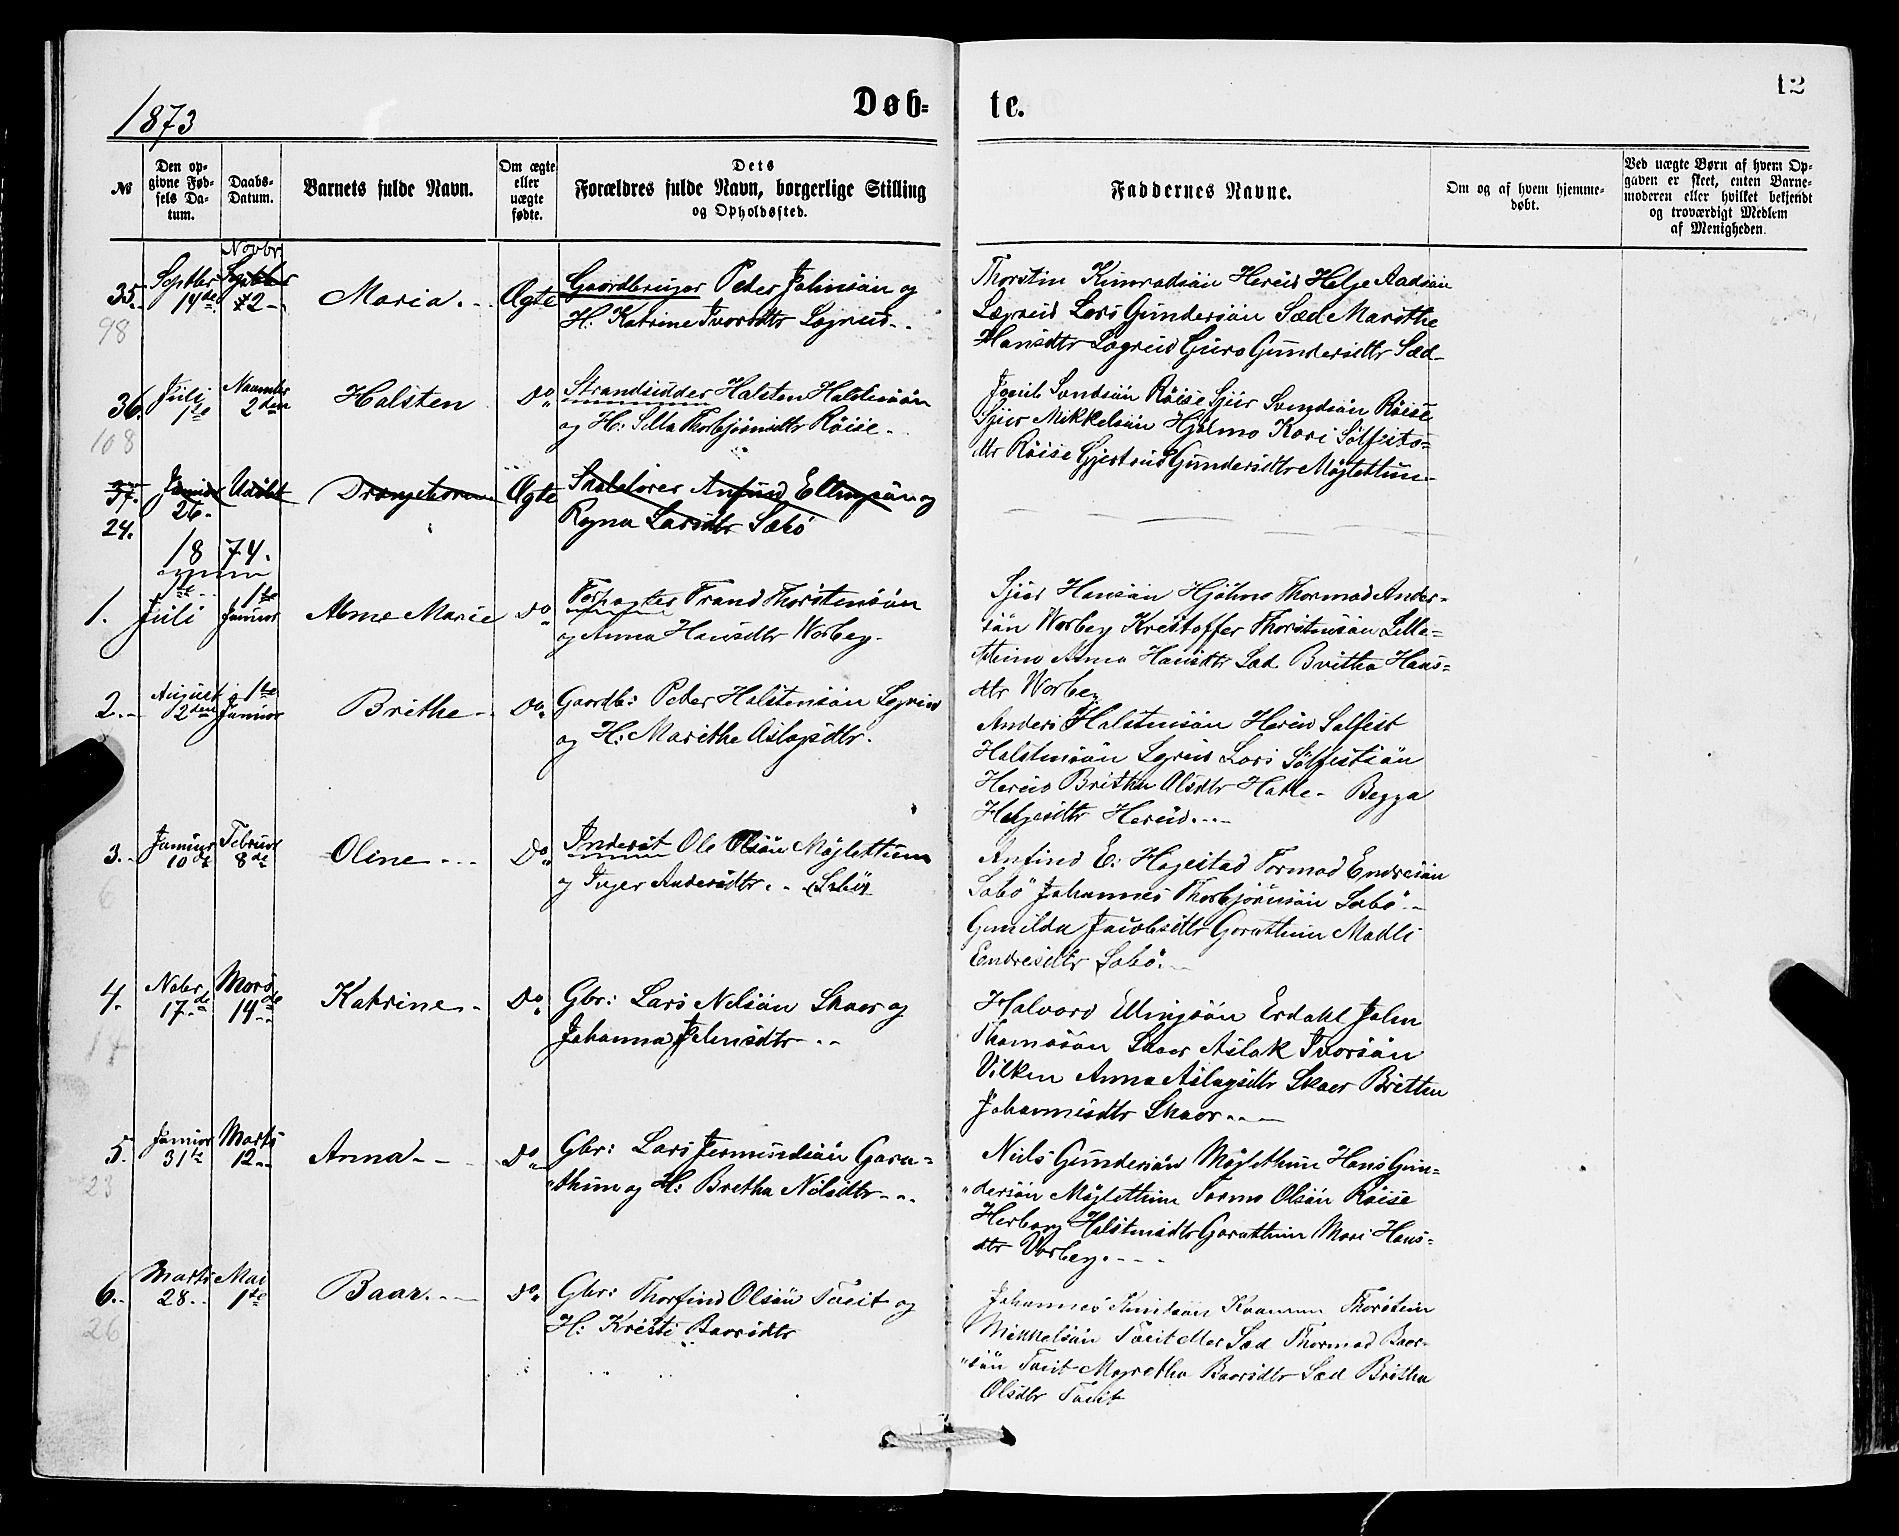 1873
Døb-
te.
12
№
Den op-
givne Fød-
sels Da-
tum.
Daabs-
Datum.
Barnets fulde Navn.
Om ægte
eller
uægte
fødte.
Dets
Forældres fulde Navn, borgerlige Stilling
og Opholdssted.
Faddernes Navne.
Om og af hvem hjemme-
døbt.
Ved uægte Børn af hvem Op-
gaven er skeet, enten Barne-
moderen eller hvilket bekjendt
og troværdigt Medlem
af Menigheden.
35.
98
Septbr
14de
Novbr
2
Maria
Ægte
Gaardbruger Peder Johnsön og
H: Katrine Ivarsdtr Legreid
Thorstin Kunradsön Hereid Helge Aadsön
Lægreid Lars Gundersön Sæd Marithe
Hansdtr Lægreid Guro Gundersdtr Sæd
36.
108
Juli
1te
2den
Halsten
Do
Strandsidder Halsten Halstensön
og H: Silla Thorbjörnsdtr Röise
Svendsön Röise Sjur Svendsön Röise
Sjur Mikkelsön Hjölmo Kari Sölfests-
dtr Röise Gjertrud Gundersdtr Möjlethun
37.
24.
Januar
26
Udöbt
Drengebarn
Ægte
Skolelærer Anfind Ellingsön og
Ragna Larsdtr Sæbö
1874.
1.
Juli
1te
Januar
Anne Marie
Do
Forpagter Trand Thorstensön
og Anna Hansdtr Worbey
Sjur Hansön Hjölmo Thormod Anders-
sön Worbey Kristoffer Thorstensön Lille-
thun Anna Hansdtr Sæd Britha Hans-
dtr Worbey
2.
August
12den
1te
Januar
Brithe
Do
Gaardb: Peder Halstensön Legreid
og H: Marithe Aslagsdtr.
Anders Halstensön Hereid Salfest
Halstensön Legreid Lars Sölfestsön
Hereid Britha Olsdtr Hatle Begga
Helgesdtr Hereid
3.
6
Januar
10de
Februar
8de
Oline
Do
Inderst Ole Olsön Möjlethun
og Inger Andersdtr. (Sæbö)
Anfind E: Hagestad Tormod Endresön
Sæbö Johannes Thorbjörnsön Sæbö
Gunilda Jacobsdtr Garathun Madli
Endresdtr Sæbö.
4.
17
Nobr
17de
Mars
14de
Katrine
Do
Gbr: Lars Nelsön Skaar og
Johanna Johnsdtr
Halvard Ellingsön Erdahl John
Thomasön Skaar Aslak Ivarsön
Vilken Anna Aslagsdtr Skaar Britten
Johannesdtr Skaar
5.
23
Januar
31te
Marts
12
Anna
Do
Gbr: Lars Jermundsön Gara-
thun og H: Bretha Nilsdtr
Niels Gundersön Möjlethun Hans Gun-
dersön Möjlethun Tormo Olsön Röise
Herborg Halstensdtr Garathun Mari Hans-
dtr Vorbey.
6.
26
Marts
28
Mai
1te
Baar
Do
Gbr: Thorfind Olsön Tveit og
H: Kristi Baarsdtr
Johannes Knudsön Thorstein
Mikkelsön Tveit Sæd Thormod Baar-
sön Tveit Maretha Baarsdtr Sæd Britha
Olsdtr Tveit